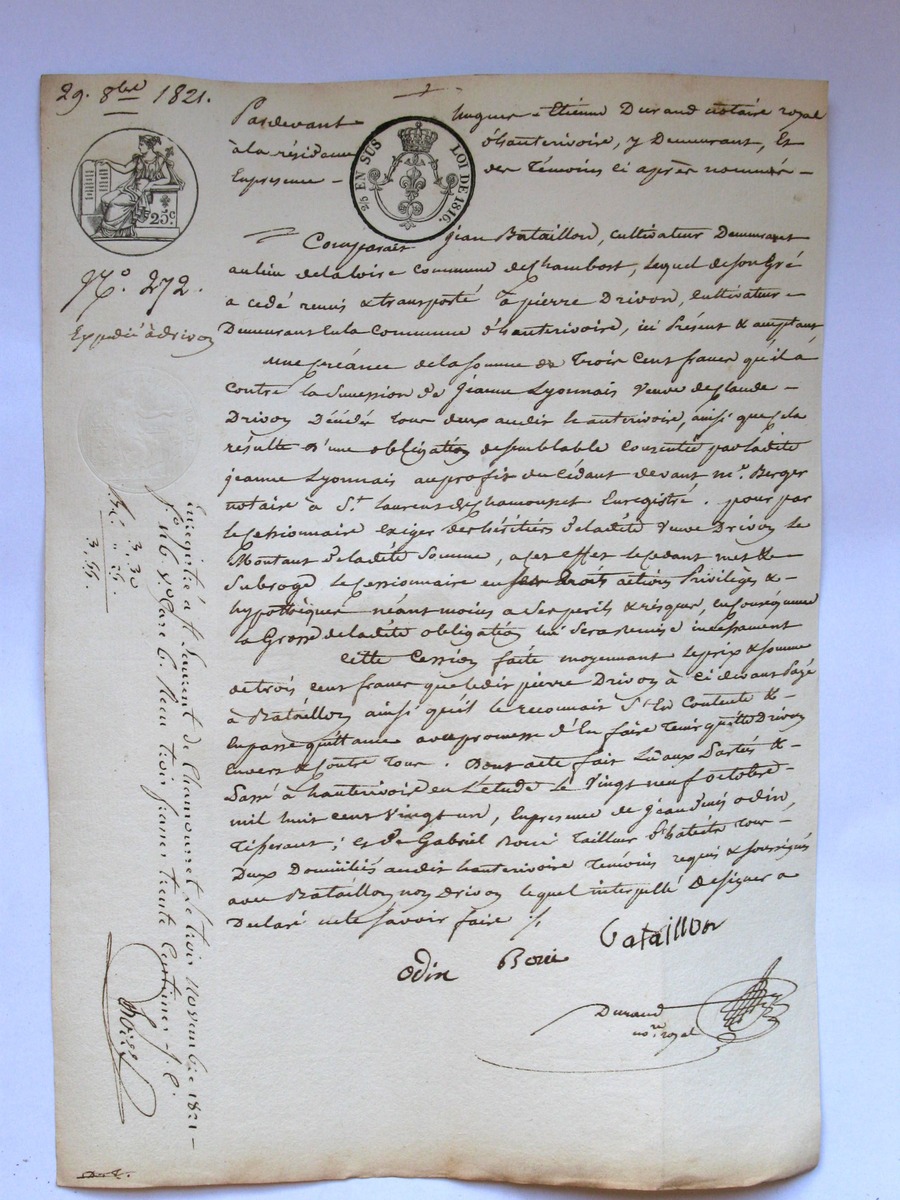 29. 8bre 1821.
Pardevant hugues-Etienne Durand notaire royal
à la résidence d'hauterivoire, y Demeurant, Et
En presence des Témoins ci après nommés
EN SUS LOI DE 1816.
25c.
Comparait jean Bataillon, cultivateur Demeurant
au lieu de la loire commune de Chambost, lequel de son Gré
a cedé remis & transporté à pierre Drivon, cultivateur
Demeurant En la Commune d'hauterivoire, ici Présent & acceptant
N.o 272.
Expedié à drivon
une créance de la somme de Trois Cent francs qu'il a
contre la Succession de jeanne Lyonnais veuve de Claude
Drivon Décédés Tous deux audit hauterivoire, ainsi que cela
résulte d'une obligation de semblable Consentie par ladite
jeanne Lyonnais au profit du Cédant devant me. Berger
notaire à St. laurent de Chamousset Enregistré. pour par
le Cessionnaire Exiger des héritiers de ladite veuve Drivon le
Montant de ladite Somme, a cet effet le Cedant met &
Subroge le Cessionnaire en ses droits actions Privilèges &
hypothèques néant moins a Ses perils & risques, en Conséquence
la Grosse de ladite obligation lui Sera remise incessament
Cette Cession faite moyennant le prix & somme
de trois cent francs que ledit pierre Drivon à Ci devant Payé
à Bataillon ainsi qu'il le reconnait S'En Contente &
En passe quittance avec promesse d'En faire Tenir quitte Drivon
Envers & Contre Tous. Dont acte fait Lu aux Parties &
Passé à hauterivoire en L'étude le Vingt neuf octobre
mil huit cent Vingt un, En presence de jean denis odin,
Tisserant; et de Gabriel Boué Tailleur d'habits Tous
Deux Domiciliés audit hauterivoire Témoins requis & soussignés
avec Bataillon non Drivon lequel interpellé de signer a
Declaré ne le savoir faire ./.
odin Boué bataillon
Durand
no.re royal
Enregistré à St Laurent de Chamousset le trois Novembre 1821
f.o 116. V.o Case 6. Reçu trois francs trente Centimes
3. 30
3. 55.